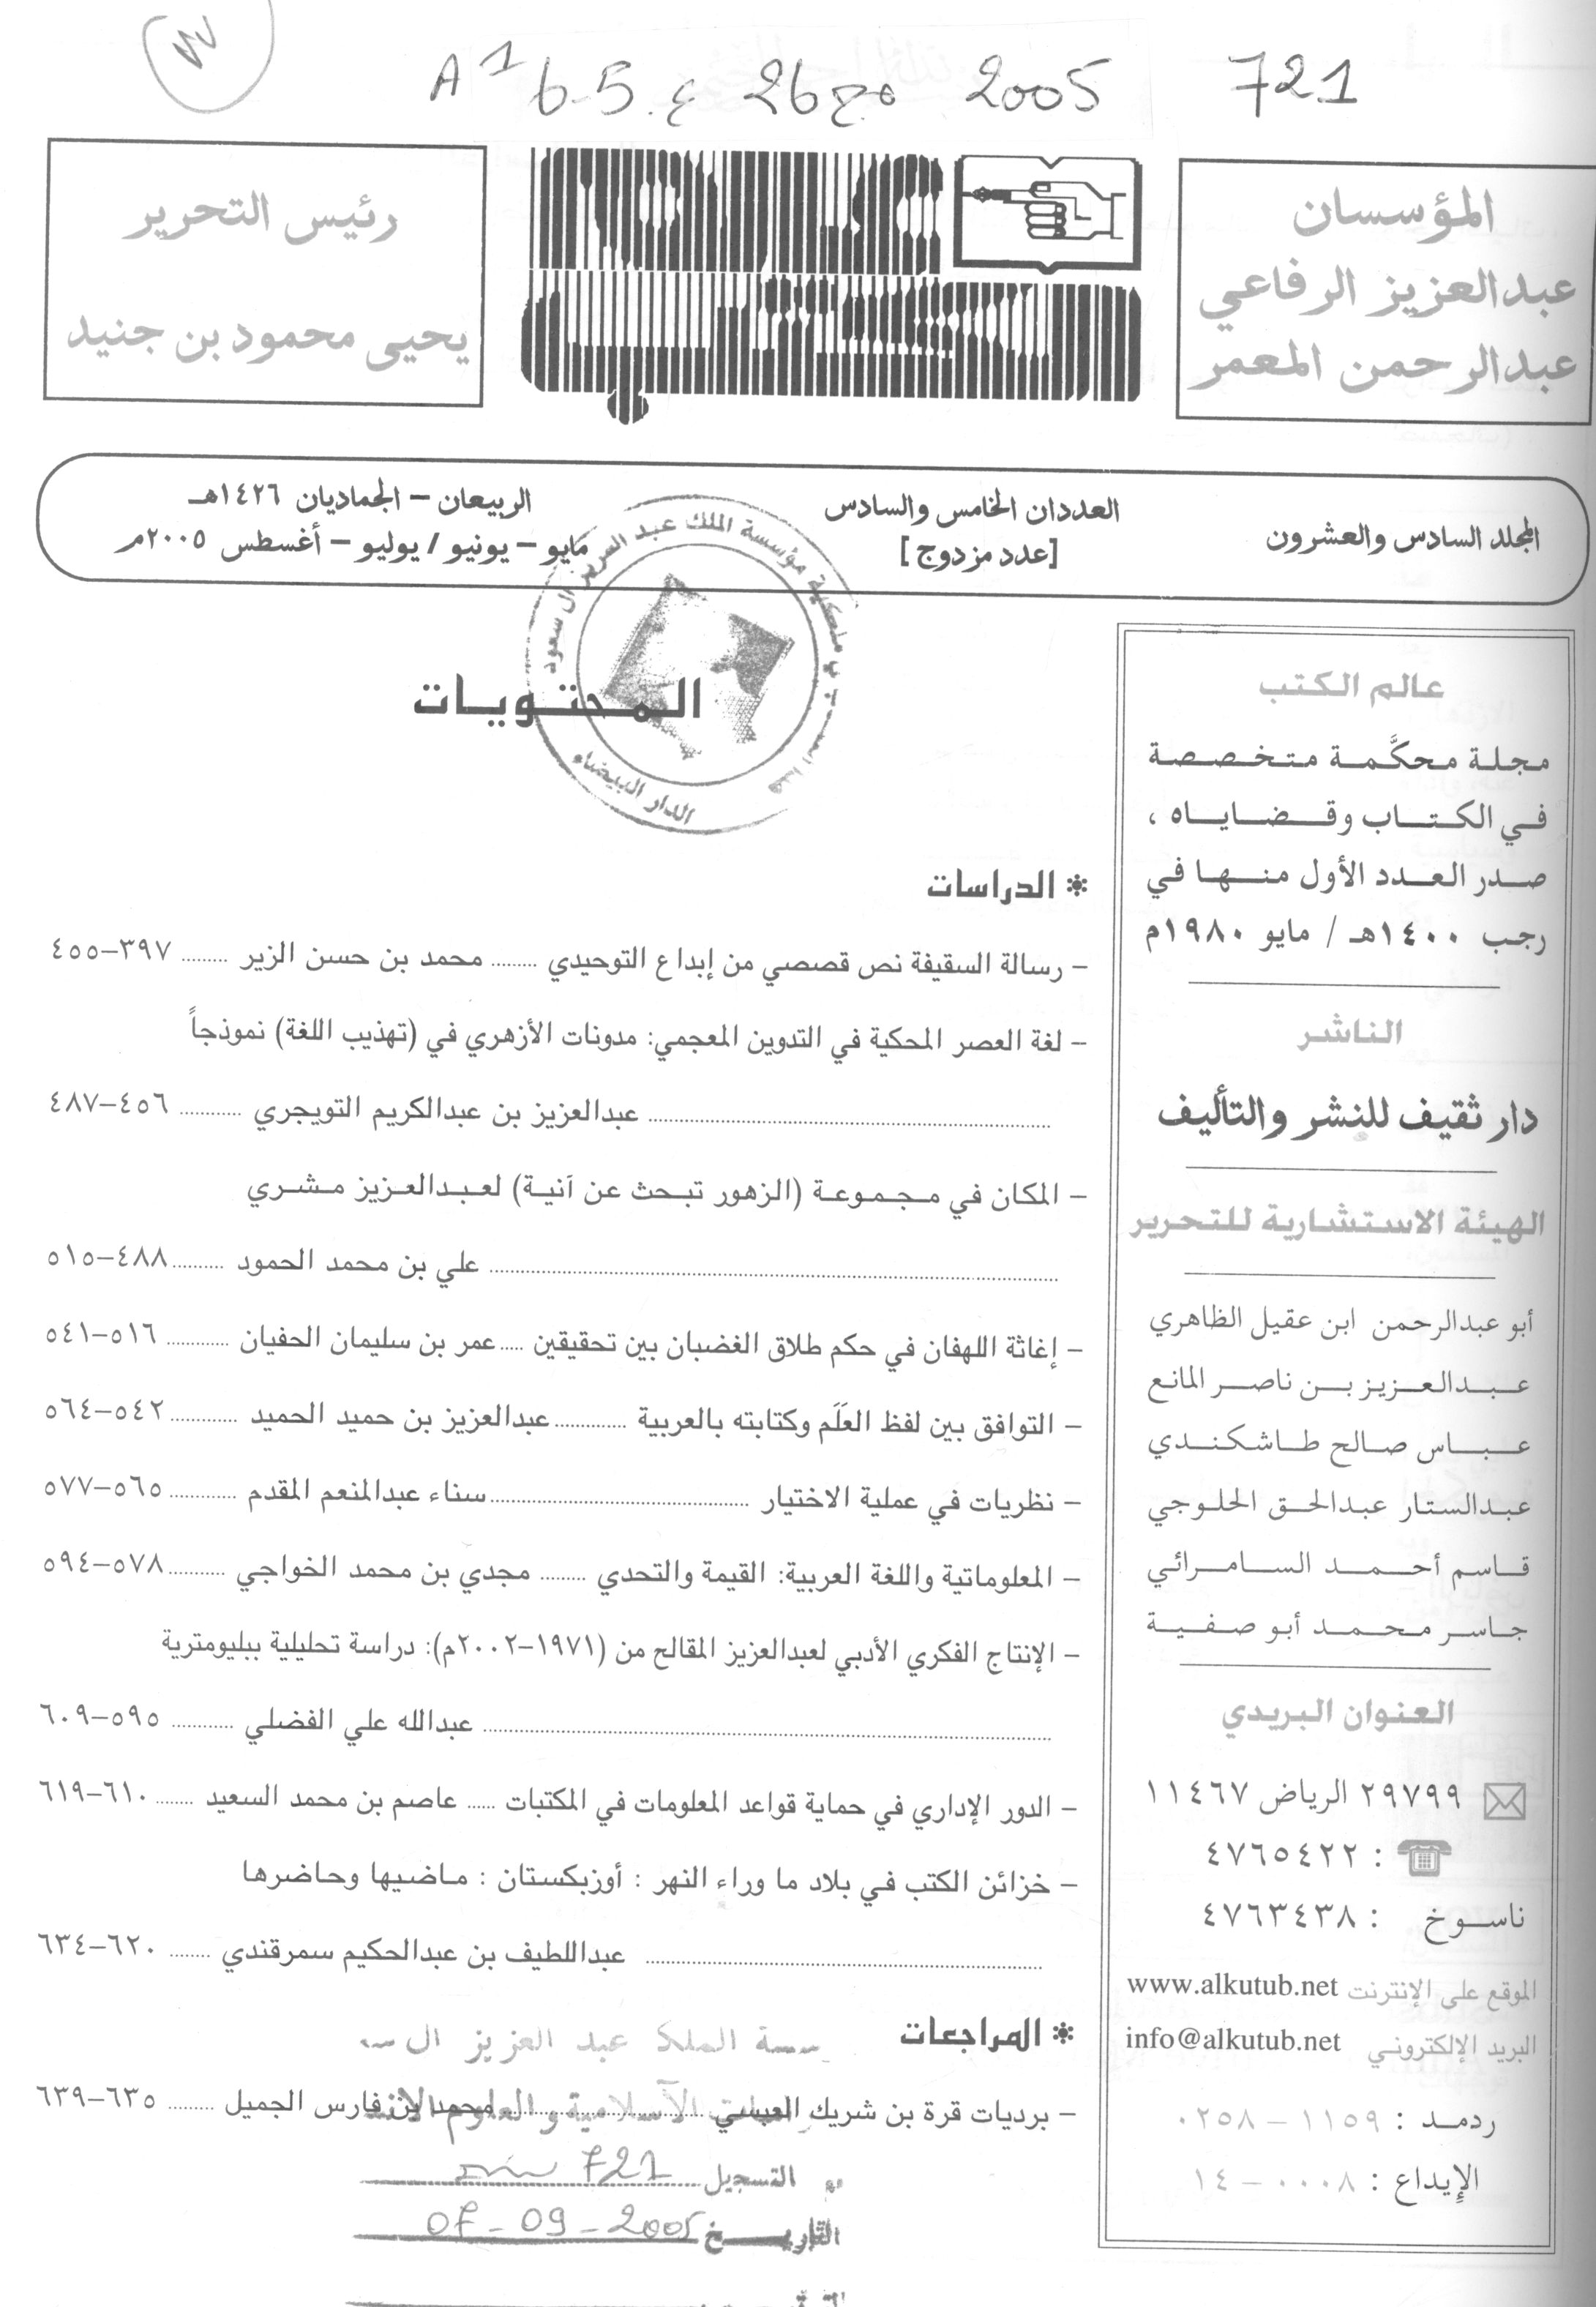 A1 6-5.ع 26 مج 2005 721
المؤسسان
عبدالعزيز الرفاعي
عبدالرحمن المعمر
عالم الكتب
رئيس التحرير
يحيى محمود بن جنيد
المجلد السادس والعشرون
العددان الخامس والسادس
[عدد مزدوج]
الربيعان – الجماديان ١٤٢٦هـ
مايو – يونيو / يوليو – أغسطس ٢٠٠٥م
عالم الكتب
مجلة محكَّمة متخصصة
في الكتاب وقضاياه ،
صدر العدد الأول منها في
رجب ١٤٠٠هـ / مايو ١٩٨٠م
الناشر
دار ثقيف للنشر والتأليف
الهيئة الاستشارية للتحرير
أبو عبدالرحمن ابن عقيل الظاهري
عبدالعزيز بن ناصر المانع
عباس صالح طاشكندي
عبدالستار عبدالحق الحلوجي
قاسم أحمد السامرائي
جاسر محمد أبو صفية
العنوان البريدي
٢٩٧٩٩ الرياض ١١٤٦٧
: ٤٧٦٥٤٢٢
ناسوخ : ٤٧٦٣٤٣٨
الموقع على الإنترنت www.alkutub.net
البريد الإلكتروني info@alkutub.net
ردمد : ١١٥٩ – ٠٢٥٨
الإيداع : ٠٠٠٨ – ١٤
مؤسسة الملك عبد العزيز ال سعود
الدار البيضاء
المحتويات
* الدراسات
– رسالة السقيفة نص قصصي من إبداع التوحيدي ........ محمد بن حسن الزير ........ ٣٩٧–٤٥٥
– لغة العصر المحكية في التدوين المعجمي: مدونات الأزهري في (تهذيب اللغة) نموذجاً
........ عبدالعزيز بن عبدالكريم التويجري ........ ٤٥٦–٤٨٧
– المكان في مجموعة (الزهور تبحث عن آنية) لعبدالعزيز مشري
........ علي بن محمد الحمود ........ ٤٨٨–٥١٥
– إغاثة اللهفان في حكم طلاق الغضبان بين تحقيقين ..... عمر بن سليمان الحفيان ........ ٥١٦–٥٤١
– التوافق بين لفظ العَلَم وكتابته بالعربية ........ عبدالعزيز بن حميد الحميد ........ ٥٤٢–٥٦٤
– نظريات في عملية الاختيار ........ سناء عبدالمنعم المقدم ........ ٥٦٥–٥٧٧
– المعلوماتية واللغة العربية: القيمة والتحدي ........ مجدي بن محمد الخواجي ........ ٥٧٨–٥٩٤
– الإنتاج الفكري الأدبي لعبدالعزيز المقالح من (١٩٧١–٢٠٠٢م): دراسة تحليلية ببليومترية
........ عبدالله علي الفضلي ........ ٥٩٥–٦٠٩
– الدور الإداري في حماية قواعد المعلومات في المكتبات ..... عاصم بن محمد السعيد ....... ٦١٠–٦١٩
– خزائن الكتب في بلاد ما وراء النهر : أوزبكستان : ماضيها وحاضرها
........ عبداللطيف بن عبدالحكيم سمرقندي ....... ٦٢٠–٦٣٤
* المراجعات
سة الملك عبد العزيز ال س
– برديات قرة بن شريك العبسي ........ محمد بن فارس الجميل ........ ٦٣٥–٦٣٩
الاسلامية والعلوم الانس
التسجيل 721
التاريخ 07-09-2005